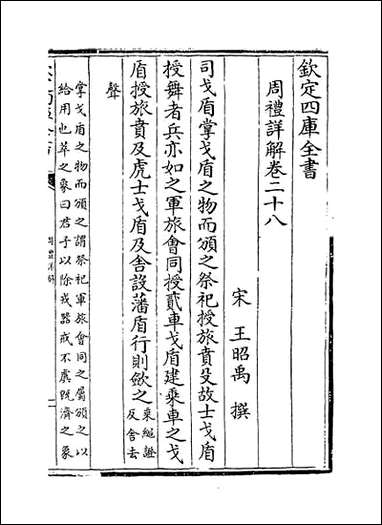 欽定四庫全書
周禮詳解卷二十八
宋 王昭禹 撰
司戈盾掌戈盾之物而頒之祭祀授旅賁殳故士戈盾
授舞者兵亦如之軍旅會同授貳車戈盾建乗車之戈
盾授旅賁及虎士戈盾及舍設藩盾行則斂之乗繩證反舍去
聲
掌戈盾之物而頒之謂祭祀軍旅會同之屬頒之以
給用也萃之象曰君子以除戎器戒不虞既濟之象
欽定四庫全書
周禮詳解
一